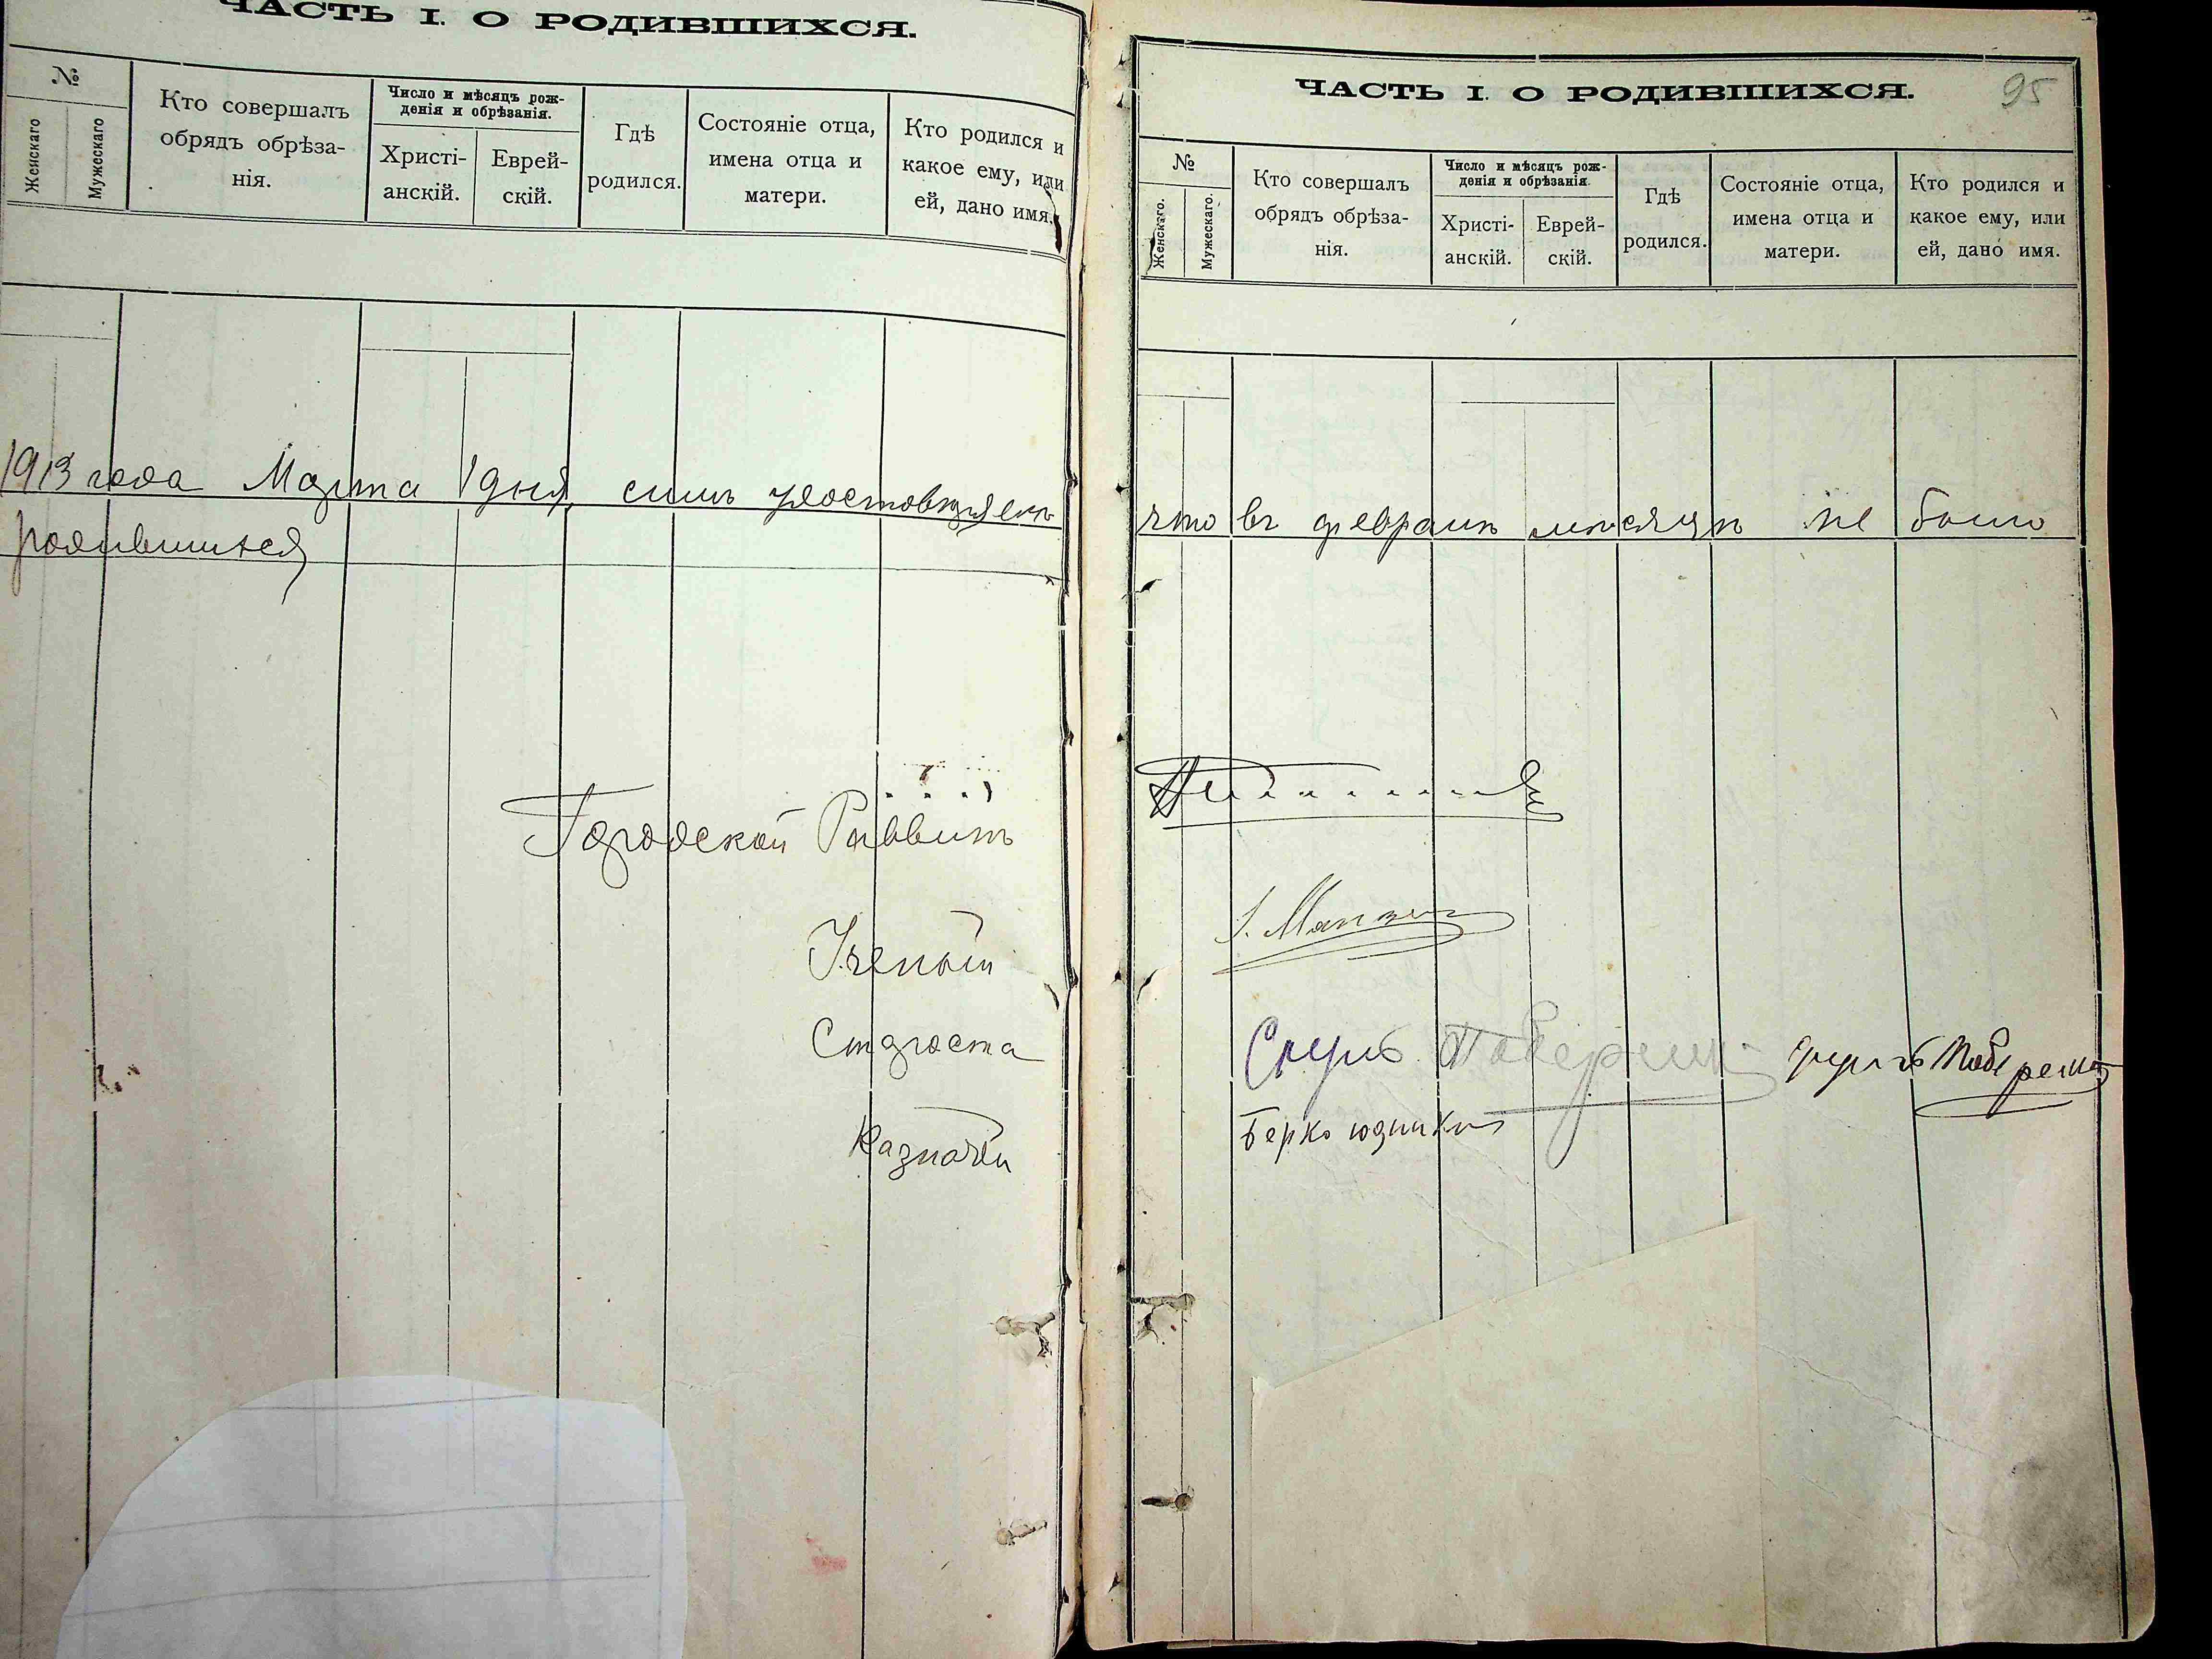 ЧАСТЬ I. О РОДИВШИХСЯ.
№
Женскаго
Мужескаго
Кто совершалъ
обрядъ обрѣза-
нія.
Число и мѣсяцъ рож-
денія и обрѣзанія.
Христі-
анскій.
Еврей-
скій.
Гдѣ
родился.
Состояніе отца,
имена отца и
матери.
Кто родился и
какое ему, или
ей, дано имя.
1913 года Марта 1 дня, симъ удостовѣряемъ
родившихся
Городской Раввинъ
Ученый
Староста
Казначей
ЧАСТЬ I. О РОДИВШИХСЯ.
95
№
Женскаго.
Мужескаго.
Кто совершалъ
обрядъ обрѣза-
нія.
Число и мѣсяцъ рож-
денія и обрѣзанія.
Христі-
анскій.
Еврей-
скій.
Гдѣ
родился.
Состояніе отца,
имена отца и
матери.
Кто родился и
какое ему, или
ей, дано имя.
что въ февралѣ мѣсяцѣ не было
Берко